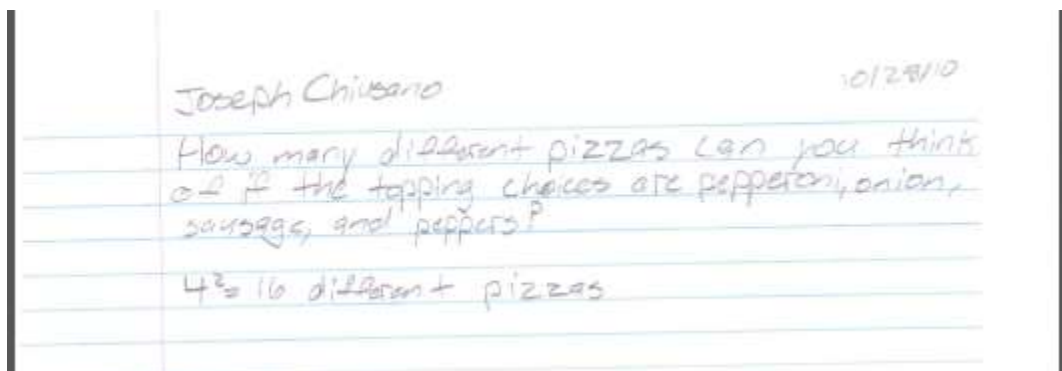 Joseph Chiusano
10/28/10
How many different pizzas can you think
of if the topping choices are pepperoni, onion,
sausage, and peppers?
4²= 16 different pizzas